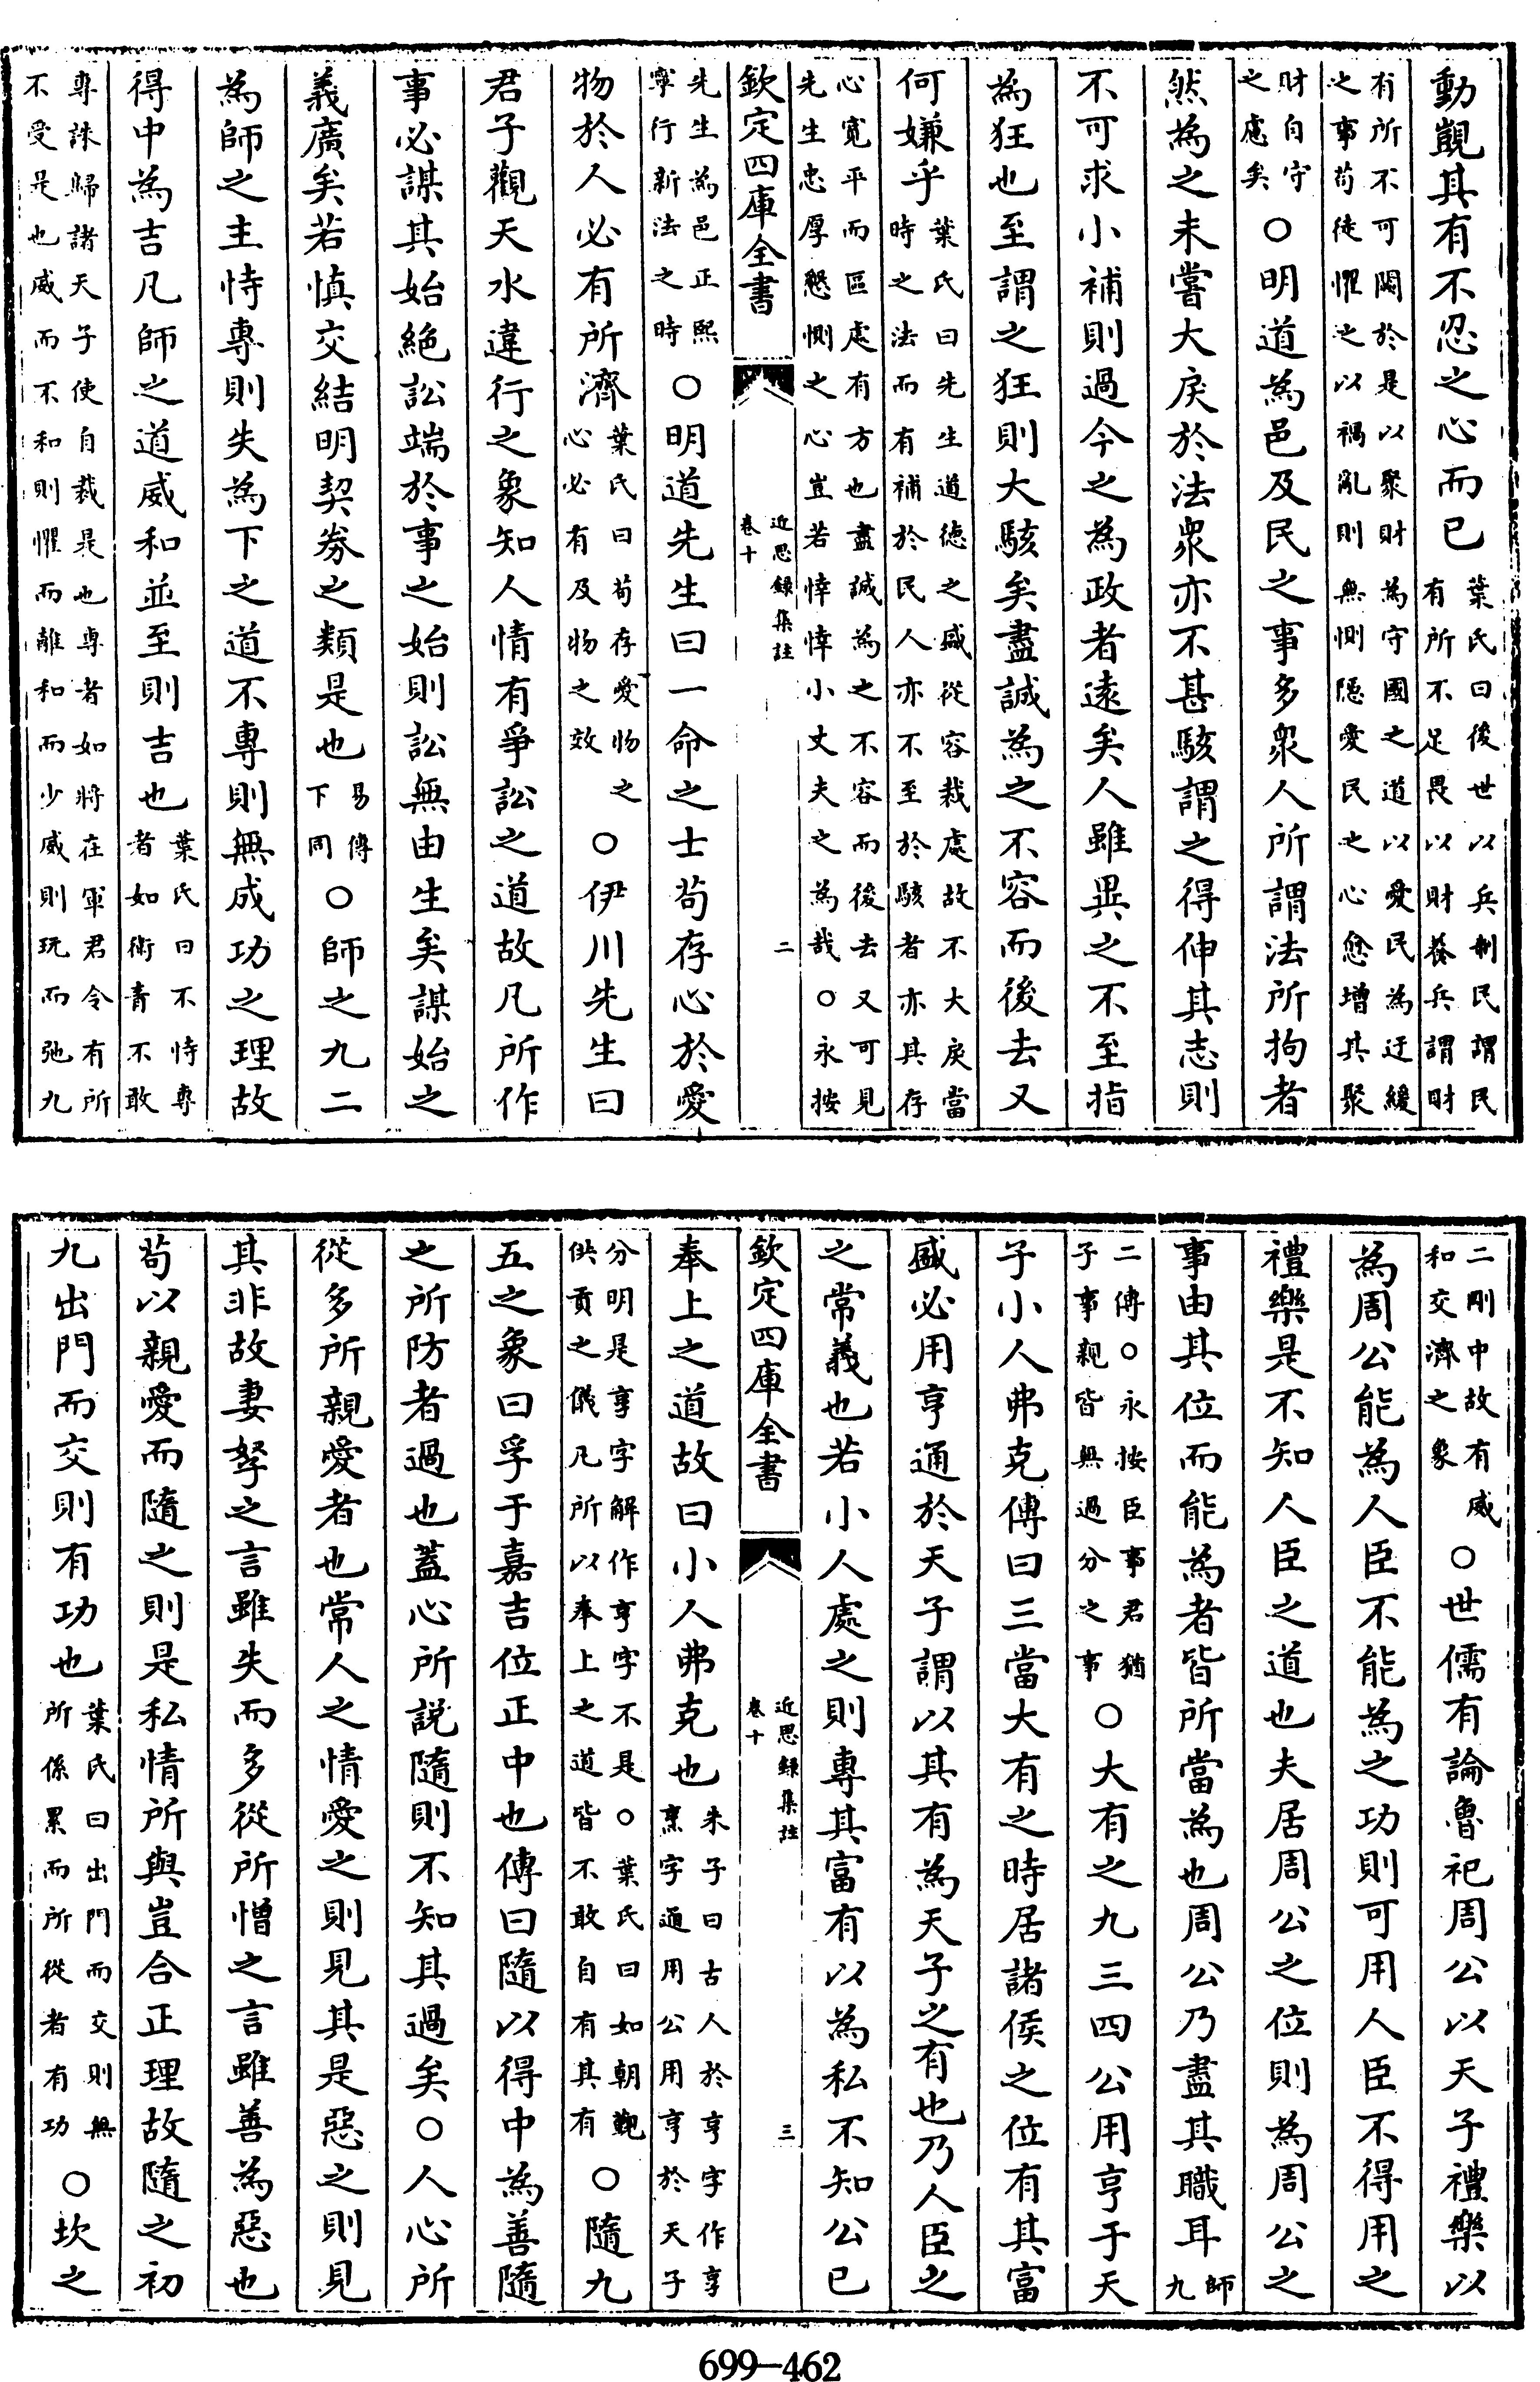 動覬其有不忍之心而已葉氏曰後世以兵制民謂民有所不足畏以財養兵謂財
有所不可闕於是以聚財為守國之道以愛民為迂緩之事苟徒懼之以禍亂則無惻隱愛民之心愈增其聚
財自守之慮矣○明道為邑及民之事多衆人所謂法所拘者
然為之未嘗大戾於法衆亦不甚駭謂之得伸其志則
不可求小補則過今之為政者遠矣人雖異之不至指
為狂也至謂之狂則大駭矣盡誠為之不容而後去又
何嫌乎葉氏曰先生道德之盛從容裁處故不大戾當時之法而有補於民人亦不至於駭者亦其存
心寛平而區處有方也盡誠為之不容而後去又可見先生忠厚懇惻之心豈若悻悻小丈夫之為哉○永按
欽定四庫全書 近思録集註 卷十 二
先生為邑正熙寧行新法之時○明道先生曰一命之士苟存心於愛
物於人必有所濟葉氏曰苟存愛物之心必有及物之效○伊川先生曰
君子觀天水違行之象知人情有爭訟之道故凡所作
事必謀其始絶訟端於事之始則訟無由生矣謀始之
義廣矣若慎交結明契劵之類是也易傳下同○師之九二
為師之主恃專則失為下之道不專則無成功之理故
得中為吉凡師之道威和並至則吉也葉氏曰不恃專者如衛青不敢
專誅歸諸天子使自裁是也專者如將在軍君令有所不受是也威而不和則懼而離和而少威則玩而弛九
二剛中故有威和交濟之象○世儒有論魯祀周公以天子禮樂以
為周公能為人臣不能為之功則可用人臣不得用之
禮樂是不知人臣之道也夫居周公之位則為周公之
事由其位而能為者皆所當為也周公乃盡其職耳師九
二傳○永按臣事君猶子事親皆無過分之事○大有之九三四公用亨于天
子小人弗克傳曰三當大有之時居諸侯之位有其富
盛必用亨通於天子謂以其有為天子之有也乃人臣之
之常義也若小人處之則專其富有以為私不知公已
欽定四庫全書 近思録集註 卷十 三
奉上之道故曰小人弗克也朱子曰古人於亨字作享烹字通用公用亨於天子
分明是享字解作亨字不是○葉氏曰如朝覲供貢之儀凡所以奉上之道皆不敢自有其有○隨九
五之象曰孚于嘉吉位正中也傳曰隨以得中為善隨
之所防者過也蓋心所說隨則不知其過矣○人心所
從多所親愛者也常人之情愛之則見其是惡之則見
其非故妻孥之言雖失而多從所憎之言雖善為惡也
苟以親愛而隨之則是私情所與豈合正理故隨之初
九出門而交則有功也葉氏曰出門而交則無所係累而所從者有功○坎之
699—462